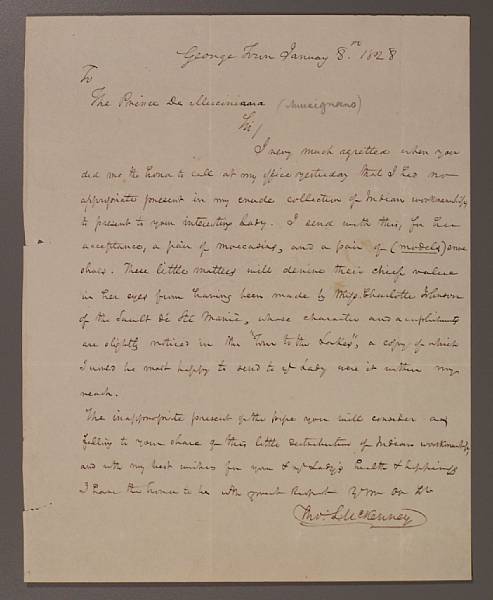 George Town January 8.th 1828
To
The Prince De Musciniana (Musignano)
Sir/
I very much regretted when you
did me the honor to call at my office yesterday that I had no
appropriate present in my crude collection of Indian workmanship
to present to your interesting Lady. I send with this, for her
acceptance, a pair of moccasins, and a pair of (models) snow
shoes. These little matters will derive their chief value
in her eyes from having been made by Miss Charlotte Johnson
of the Sault De Ste Marie, whose character and accomplishments
are slightly noticed in the "Tour to the Lakes", a copy of which
I would be most happy to send to yr Lady were it within my
reach.
The inappropriate present of the pipe you will consider as
falling to your share of this little distribution of Indian workmanship
and with my best wishes for you & yr Lady's health & happiness
I have the honor to be with great Respect Yr mo ob St
Tho: L McKenney